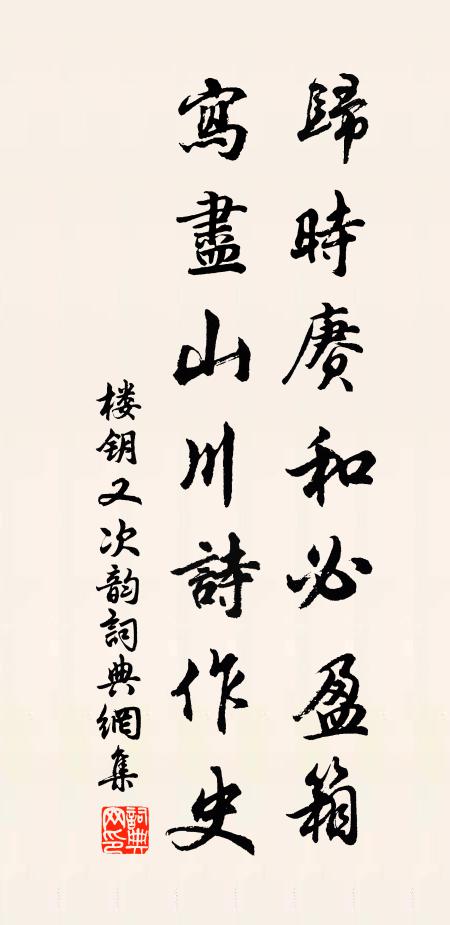 歸時賡和必盈箱
寫盡山川詩作史
楼钥又次韵詞典網集
詞典网印